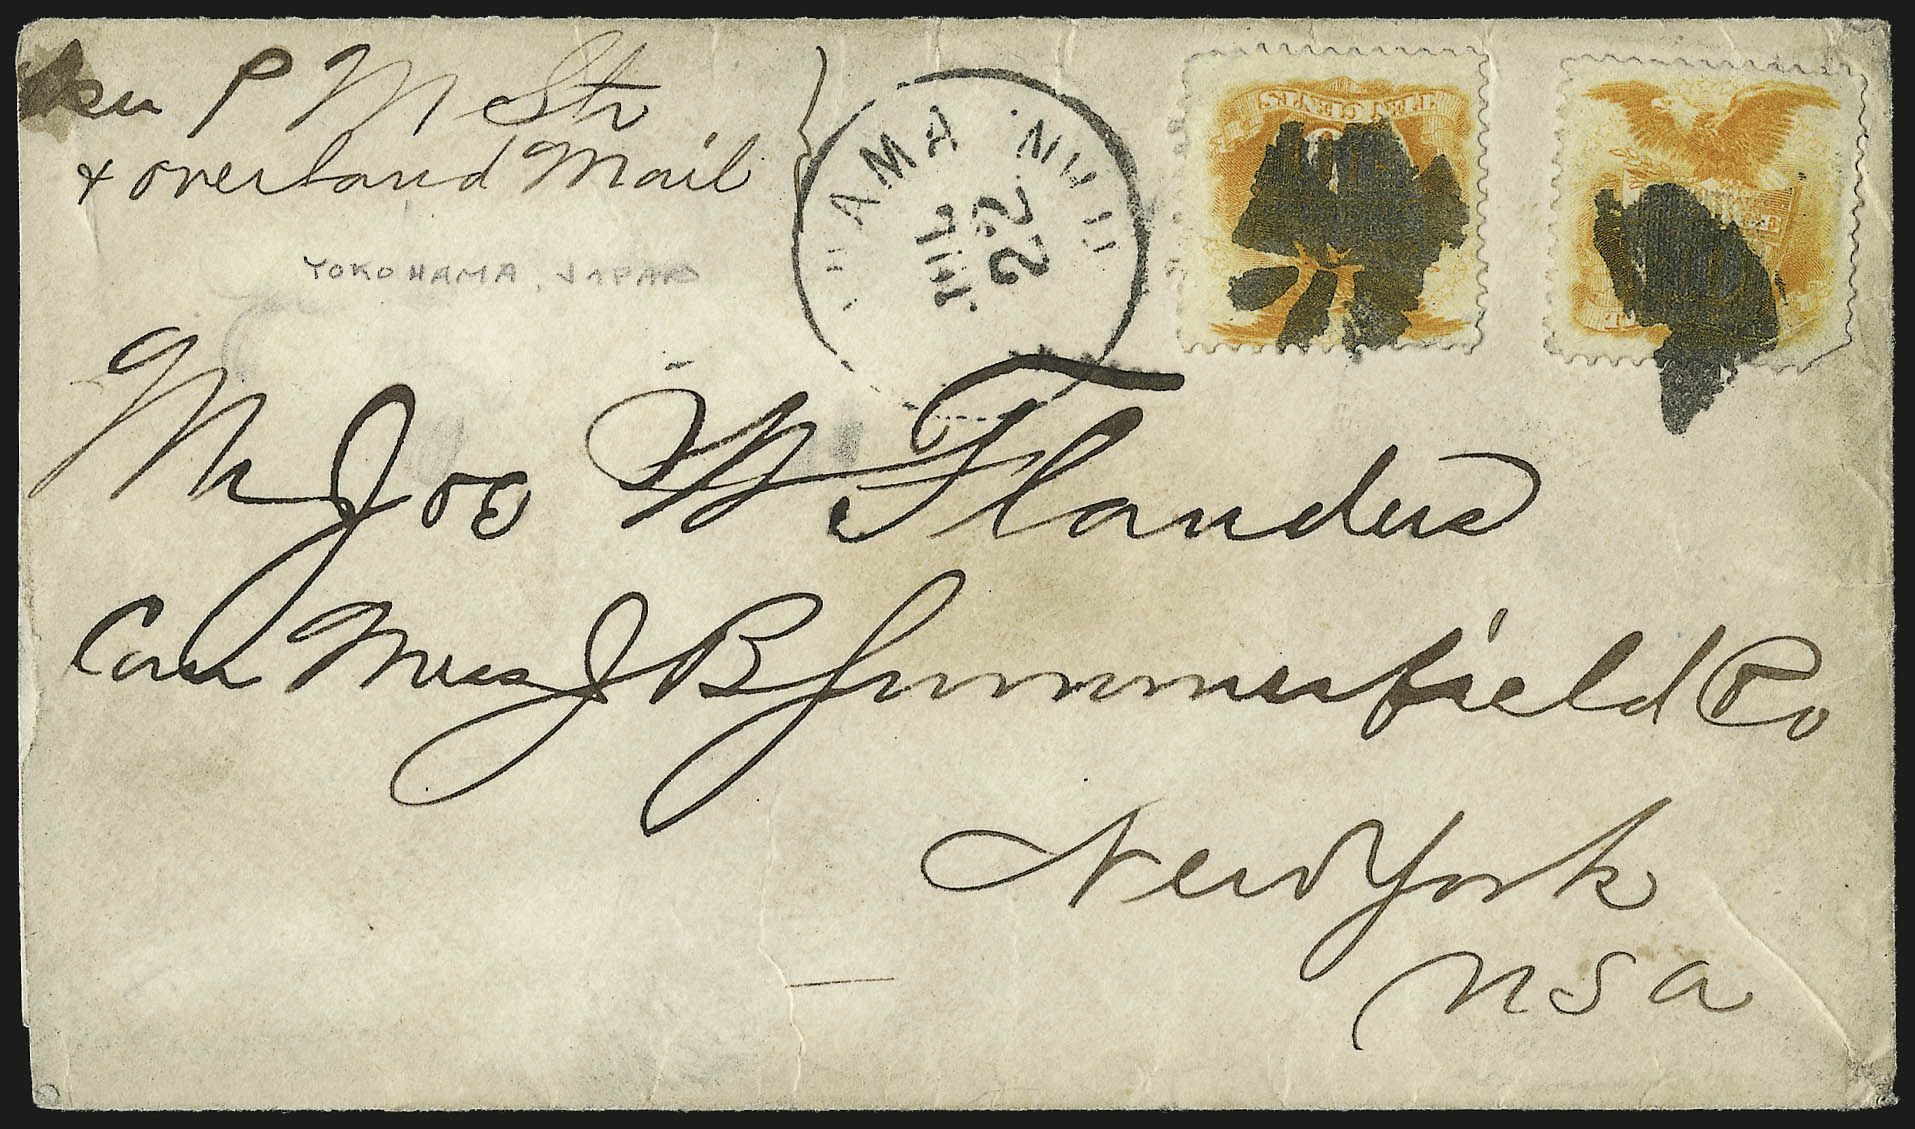 Per P M Str
& overland Mail
YOKOHAMA, JAPAN
JUL 22
TEN CENTS
Mr Joe W Flanders
Care Mess J B Summerfield Co
New York
U S A